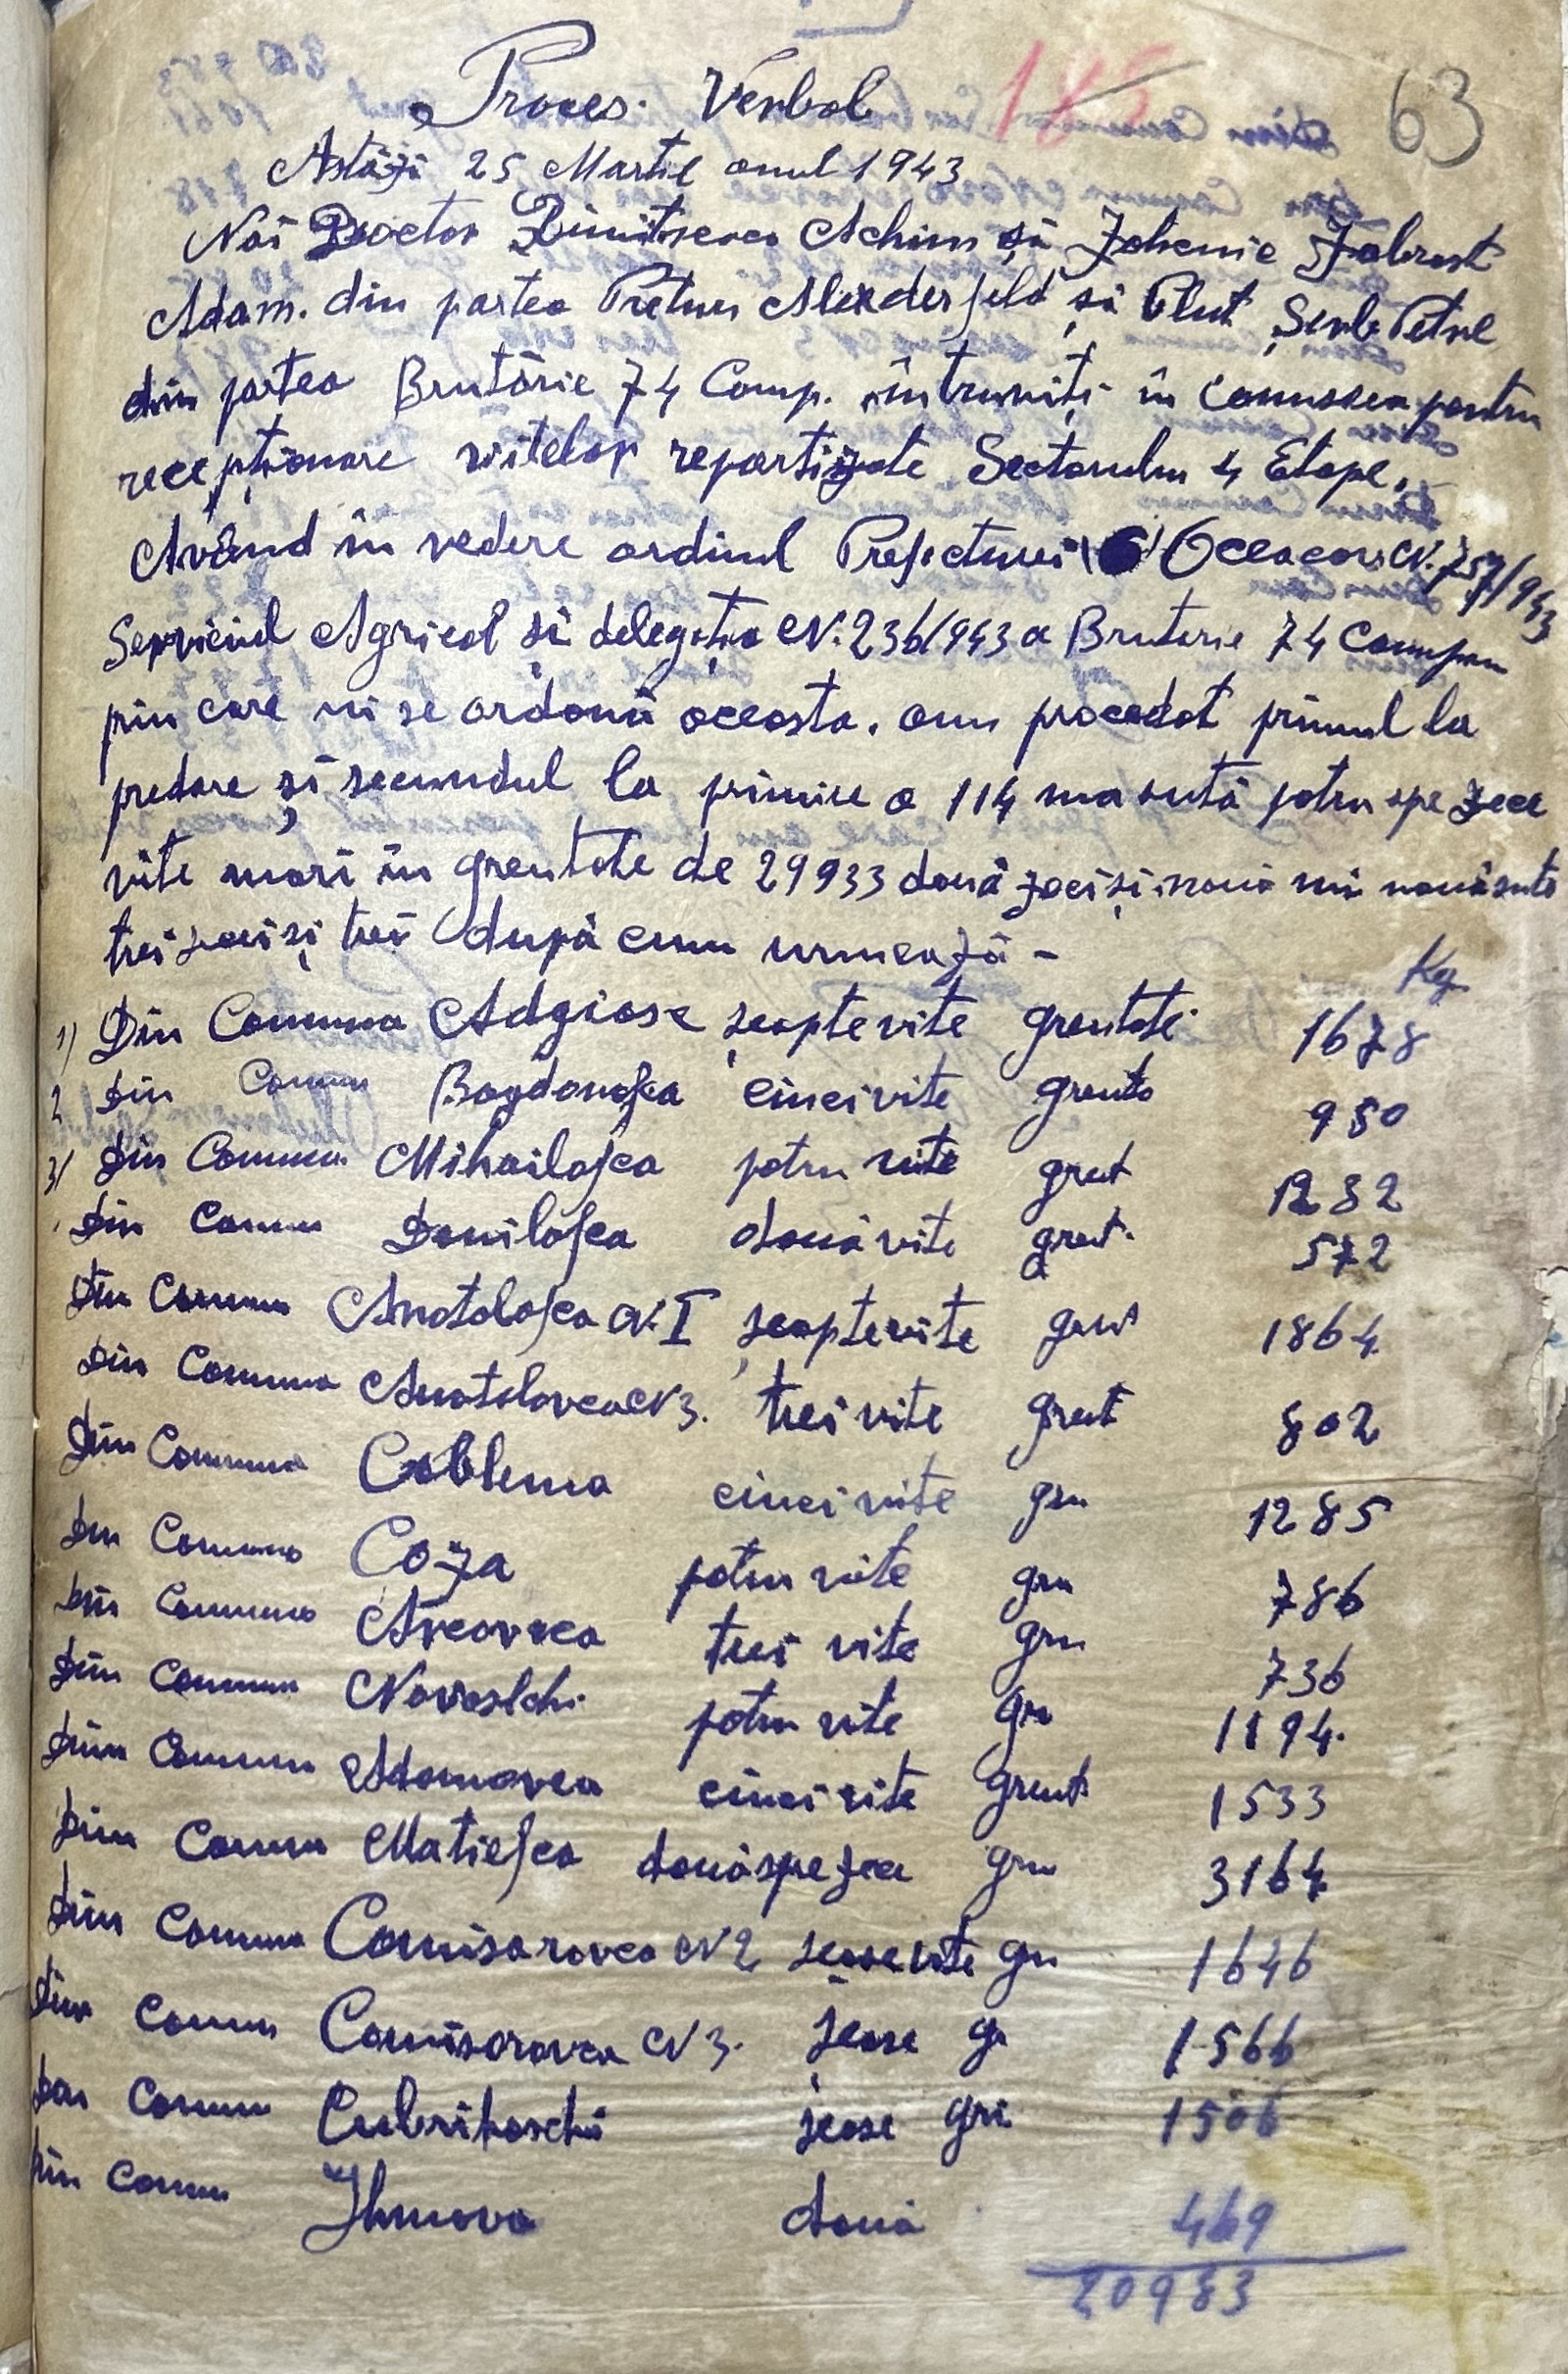 185
63
Proces. Verbal
Astăzi 25 Martie anul 1943
Noi Doctor Dimitrescu Achim și Adam. din partea Preturi Alexderfeld și Plut. Șerb Petre
din partea Brutărie 74 Comp. întruniți în comisiea pentru
recepționare vitelor repartizate Sectorului 4 Etape.
Având în vedere ordinul Prefecturei Oceacov N. 757/943
Serviciul Agricol și delegația N. 236/943 a Brutărie 74 Compan
prin care ni se ordonă aceasta. am procedat primul la
predare și secundul la primire a 114 una sută patru spe zece
vite mari în greutate de 29933 două zeci și nouă mii nouăsute
trei zeci și trei după cum urmează -
Kg
1) Din Comuna Adgiase șeapte vite greutate 1678
2 Din Comun Bogdonofca cinci vite greuta 980
3/ Din Comuna Mihailofca patru vite greut 1232
Din Comun Danilofca două vite greut. 572
Din Comuna Anatolofca N. I șeapte vite greut 1864
Din Comuna Anatolovca N 3. trei vite greut 802
Din Comuna Coblema cinci vite gru 1285
Din Comuna Coza patru vite gru 786
Din Comuna Arcovca trei vite gru 736
Din Comuna patru vite gru 1194.
Din Comun Adamovca cinci vite greut 1533
Din Comun Matiefca douăsprezece gru 3164
Din Comuna Comisarovca N 2 șease vite gru 1646
Din Comun Comisarovca N 3. șease gr 1566
Din Comun Cubrihoschi șease gri 1506
Din Comun două 469
20983